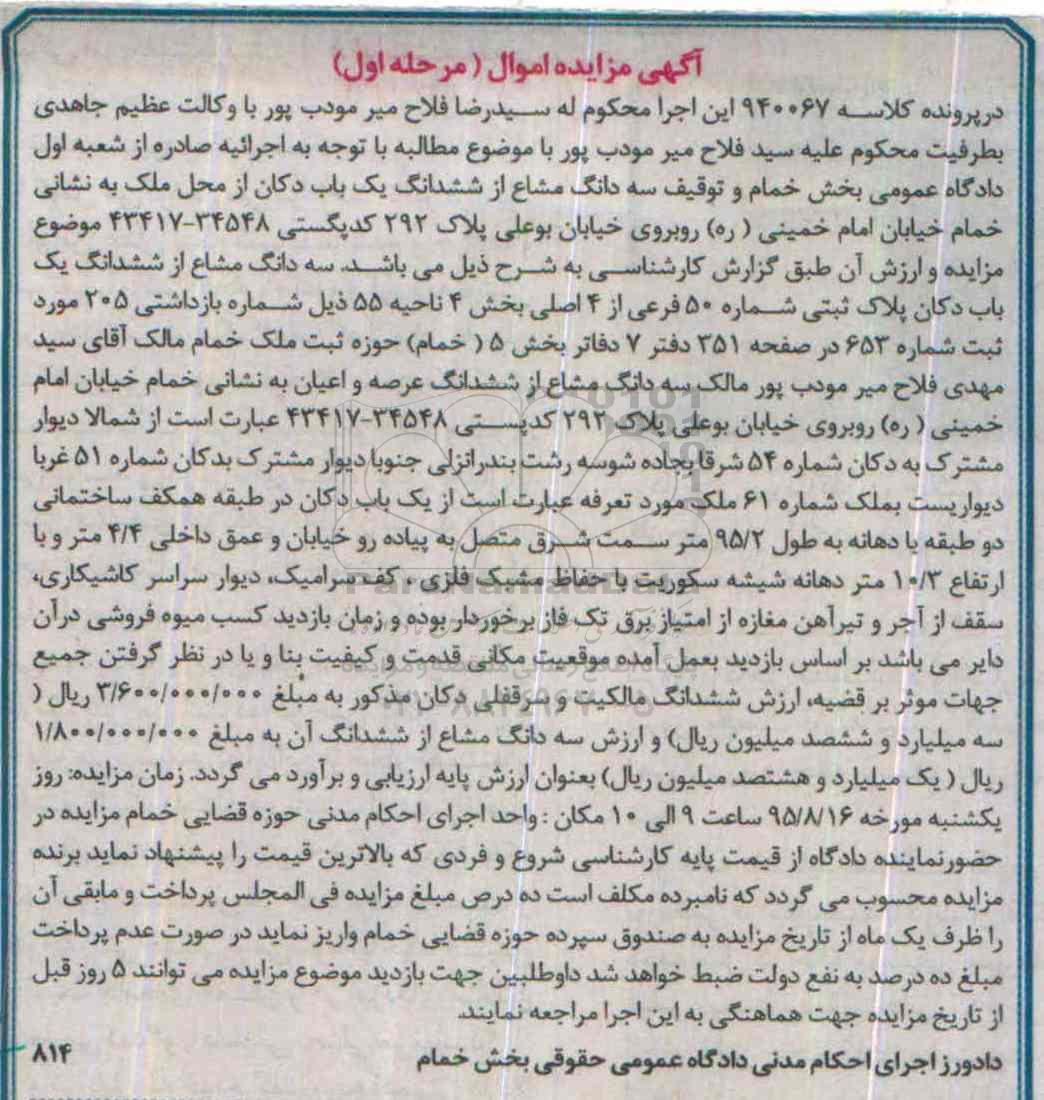 آگهی مزایده اموال (مرحله اول)
درپرونده کلاسه ۹۴۰۰۶۷ این اجرا محکوم له سیدرضا فلاح میر مودب پور با وکالت عظیم جاهدی
بطرفیت محکوم علیه سید فلاح میر مودب پور با موضوع مطالبه با توجه به اجرائیه صادره از شعبه اول
دادگاه عمومی بخش خمام و توقیف سه دانگ مشاع از ششدانگ یک باب دکان از محل ملک به نشانی
خمام خیابان امام خمینی (ره) روبروی خیابان بوعلی پلاک ۲۹۲ کدپگستی ۳۴۵۴۸-۴۳۴۱۷ موضوع
مزایده و ارزش آن طبق گزارش کارشناسی به شرح ذیل می باشد. سه دانگ مشاع از ششدانگ یک
باب دکان پلاک ثبتی شماره ۵۰ فرعی از ۴ اصلی بخش ۴ ناحیه ۵۵ ذیل شماره بازداشتی ۲۰۵ مورد
ثبت شماره ۶۵۳ در صفحه ۳۵۱ دفتر ۷ دفاتر بخش ۵ (خمام) حوزه ثبت ملک خمام مالک آقای سید
مهدی فلاح میر مودب پور مالک سه دانگ مشاع از ششدانگ عرصه و اعیان به نشانی خمام خیابان امام
خمینی (ره) روبروی خیابان بوعلی پلاک ۲۹۲ کدپستی ۳۴۵۴۸-۴۳۴۱۷ عبارت است از شمالا دیوار
مشترک به دکان شماره ۵۴ شرقا بجاده شوسه رشت بندرانزلی جنوبا دیوار مشترک بدکان شماره ۵۱ غربا
دیواریست بملک شماره ۶۱ ملک مورد تعرفه عبارت است از یک باب دکان در طبقه همکف ساختمانی
دو طبقه با دهانه به طول ۹۵/۲ متر سمت شرق متصل به پیاده رو خیابان و عمق داخلی ۴/۴ متر و با
ارتفاع ۱۰/۳ متر دهانه شیشه سکوریت با حفاظ مشبک فلزی ، کف سرامیک، دیوار سراسر کاشیکاری،
سقف از آجر و تیرآهن مغازه از امتیاز برق تک فاز برخوردار بوده و زمان بازدید کسب میوه فروشی درآن
دایر می باشد بر اساس بازدید بعمل آمده موقعیت مکانی قدمت و کیفیت بنا و یا در نظر گرفتن جمیع
جهات موثر بر قضیه، ارزش ششدانگ مالکیت و سرقفلی دکان مذکور به مبلغ ۳/۶۰۰/۰۰۰/۰۰۰ ریال (
سه میلیارد و ششصد میلیون ریال) و ارزش سه دانگ مشاع از ششدانگ آن به مبلغ ۱/۸۰۰/۰۰۰/۰۰۰
ریال ( یک میلیارد و هشتصد میلیون ریال) بعنوان ارزش پایه ارزیابی و برآورد می گردد. زمان مزایده: روز
یکشنبه مورخه ۹۵/۸/۱۶ ساعت ۹ الی ۱۰ مکان : واحد اجرای احکام مدنی حوزه قضایی خمام مزایده در
حضورنماینده دادگاه از قیمت پایه کارشناسی شروع و فردی که بالاترین قیمت را پیشنهاد نماید برنده
مزایده محسوب می گردد که نامبرده مکلف است ده درص مبلغ مزایده فی المجلس پرداخت و مابقی آن
را ظرف یک ماه از تاریخ مزایده به صندوق سپرده حوزه قضایی خمام واریز نماید در صورت عدم پرداخت
مبلغ ده درصد به نفع دولت ضبط خواهد شد داوطلبین جهت بازدید موضوع مزایده می توانند ۵ روز قبل
از تاریخ مزایده جهت هماهنگی به این اجرا مراجعه نمایند.
دادورز اجرای احکام مدنی دادگاه عمومی حقوقی بخش خمام
۸۱۴